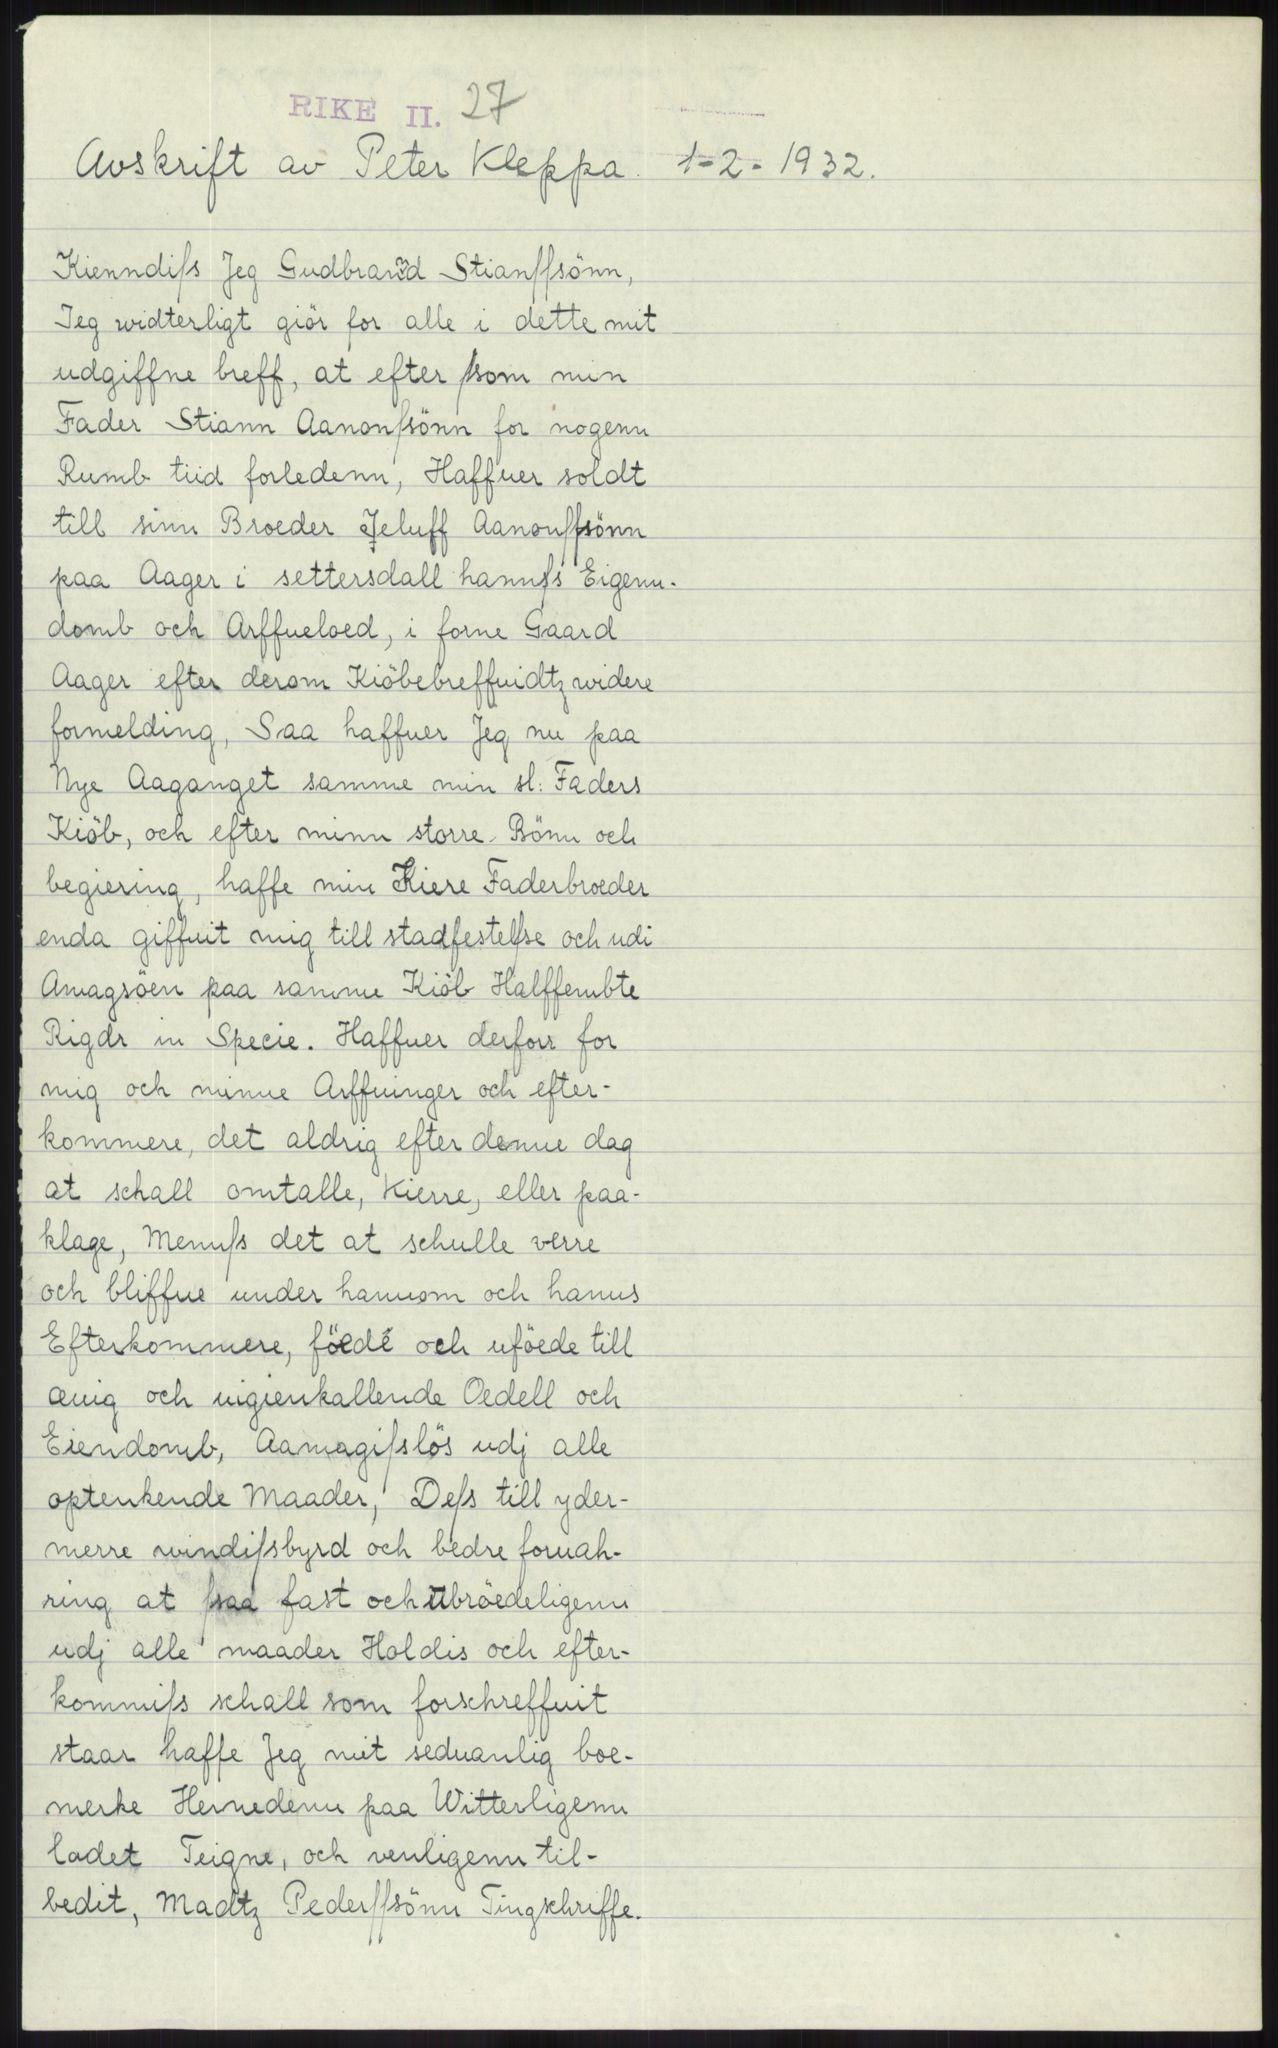 RIKE II. 27
Avskrift av Peter Kleppa. 1-2-1932.
Kienndiſs Jeg Gudbrannd Stianſſsönn,
Jeg widterligt giör for alle i dette mit
udgiffne breff, at efter ſsom min
Fader Stiann Aanonſsönn for nogenn
Rumb tiid forledenn, Haffuer soldt
till sinn Broeder Jeluff Aanonſſsönn
paa Aager i settersdall hannſs Eigenn-
domb och Arffueloed, i forne Gaard
Aager efter derom Kiöbebreffuidtz widere
formelding, Saa haffuer Jeg nu paa
Nye Aaganget samme min sl: Faders
Kiöb, och efter minn storre Bönn och
begiering, haffe min Kiere Faderbroeder
enda giffuit mig till stadfestelſse och udi
Amagsöen paa samme Kiöb Halffembte
Rigdr in Specie. Haffuer derforr for
mig och minne Arffuinger och efter-
kommere, det aldrig efter denne dag
at schall omtalle, Kierre, eller paa-
klage, Mennſs det at schulle verre
och bliffue under hannom och hanns
Efterkommere, föedé och uföede till
ævig och uigienkallende Oedell och
Eiendomb, Aamagiſslös udj alle
optenkende Maader, Deſs till yder-
merre windiſsbyrd och bedre foruah-
ring at ſsaa fast och ubröedeligenn
udj alle maader Holdis och efter-
kommiſs schall som forschreffuit
staar haffe Jeg mit seduanlig boe-
merke Hernedenn paa Witterligenn
ladet Teigne, och venligenn til-
bedit, Madtz Pederſſsönn Tingschriffe.